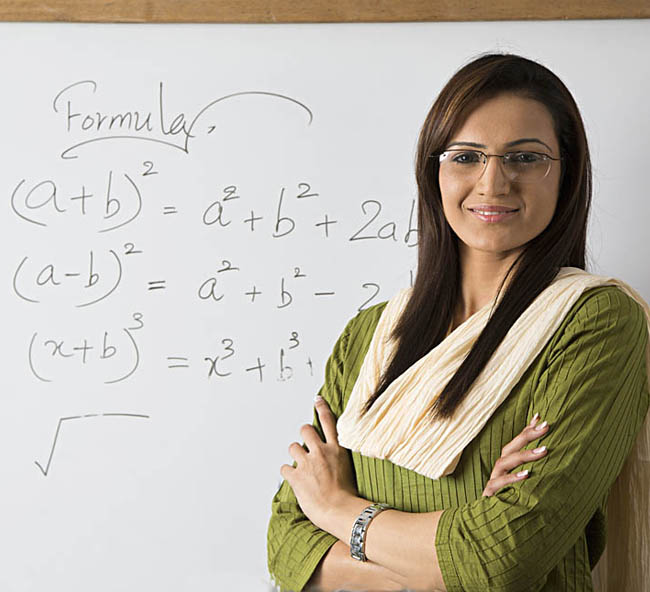 Formula,
(a+b)² = a² + b² + 2ab
(a-b)² = a² + b² - 2
(x+b)³ = x³ + b³ +
√